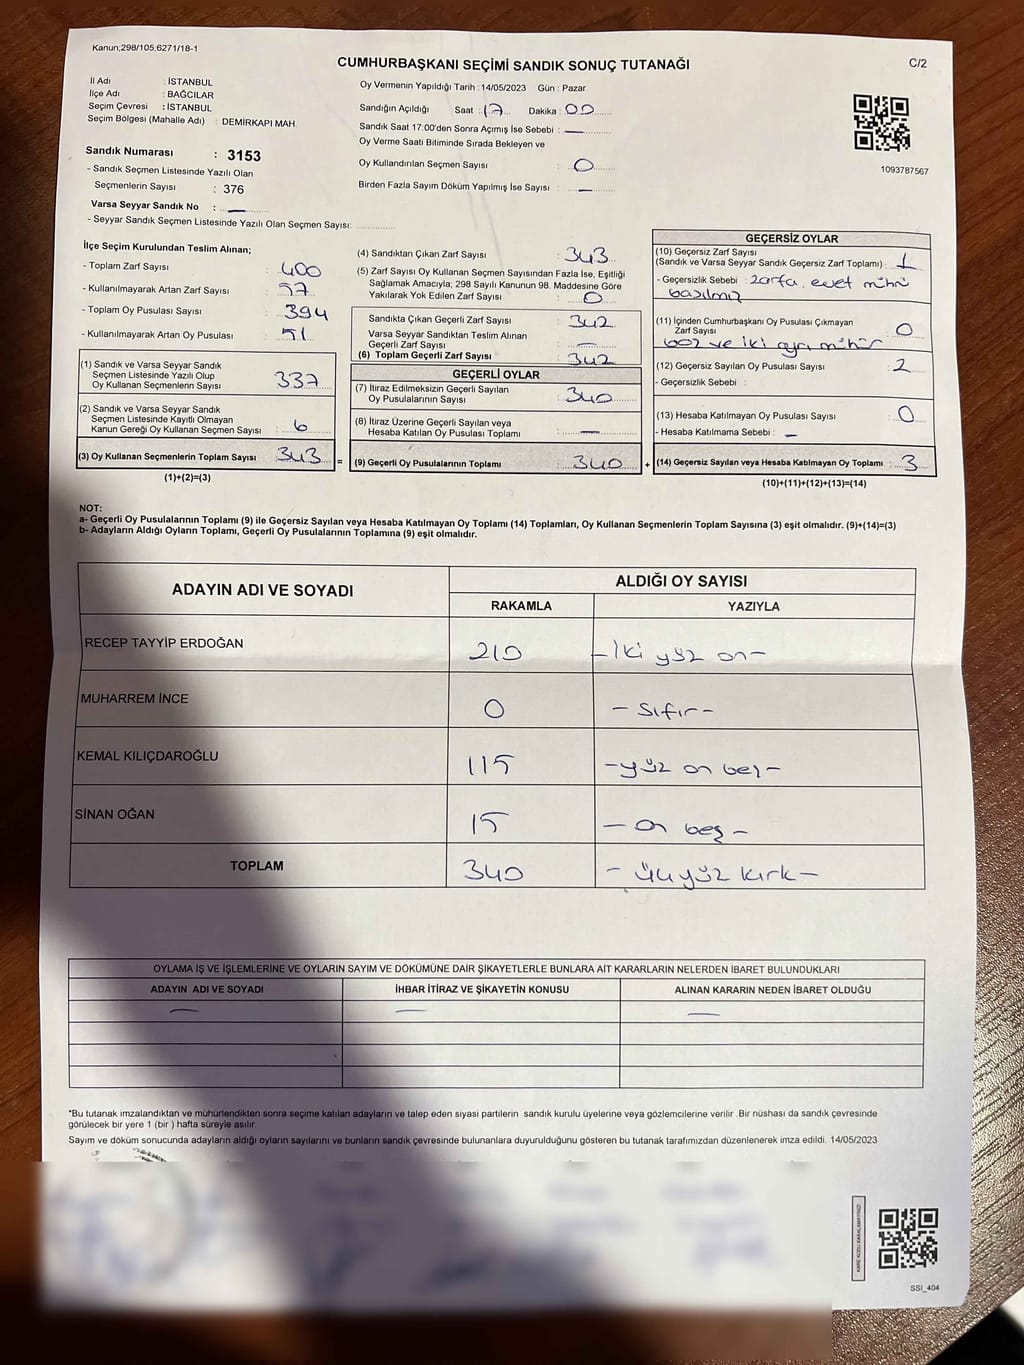 Kanun;298/105;6271/18-1
CUMHURBAŞKANI SEÇİMİ SANDIK SONUÇ TUTANAĞI
C/2
İl Adı : İSTANBUL
İlçe Adı : BAĞCILAR
Seçim Çevresi : İSTANBUL
Seçim Bölgesi (Mahalle Adı) : DEMİRKAPI MAH.
Sandık Numarası : 3153
- Sandık Seçmen Listesinde Yazılı Olan
Seçmenlerin Sayısı : 376
Varsa Seyyar Sandık No : —
- Seyyar Sandık Seçmen Listesinde Yazılı Olan Seçmen Sayısı:
Oy Vermenin Yapıldığı Tarih : 14/05/2023 Gün : Pazar
Sandığın Açıldığı Saat : 17 Dakika : 00
Sandık Saat 17:00'den Sonra Açımış İse Sebebi : —
Oy Verme Saati Bitiminde Sırada Bekleyen ve
Oy Kullandırılan Seçmen Sayısı : 0
Birden Fazla Sayım Döküm Yapılmış İse Sayısı : —
1093787567
İlçe Seçim Kurulundan Teslim Alınan;
- Toplam Zarf Sayısı : 400
- Kullanılmayarak Artan Zarf Sayısı : 57
- Toplam Oy Pusulası Sayısı : 394
- Kullanılmayarak Artan Oy Pusulası : 51
(1) Sandık ve Varsa Seyyar Sandık
Seçmen Listesinde Yazılı Olup
Oy Kullanan Seçmenlerin Sayısı : 337
(2) Sandık ve Varsa Seyyar Sandık
Seçmen Listesinde Kayıtlı Olmayan
Kanun Gereği Oy Kullanan Seçmen Sayısı : 6
(3) Oy Kullanan Seçmenlerin Toplam Sayısı : 343 =
(1)+(2)=(3)
(4) Sandıktan Çıkan Zarf Sayısı : 343
(5) Zarf Sayısı Oy Kullanan Seçmen Sayısından Fazla İse, Eşitliği
Sağlamak Amacıyla; 298 Sayılı Kanunun 98. Maddesine Göre
Yakılarak Yok Edilen Zarf Sayısı : 0
Sandıkta Çıkan Geçerli Zarf Sayısı : 342
Varsa Seyyar Sandıktan Teslim Alınan
Geçerli Zarf Sayısı : —
(6) Toplam Geçerli Zarf Sayısı : 342
GEÇERLİ OYLAR
(7) İtiraz Edilmeksizin Geçerli Sayılan
Oy Pusulalarının Sayısı : 340
(8) İtiraz Üzerine Geçerli Sayılan veya
Hesaba Katılan Oy Pusulası Toplamı : —
(9) Geçerli Oy Pusulalarının Toplamı : 340 +
GEÇERSİZ OYLAR
(10) Geçersiz Zarf Sayısı
(Sandık ve Varsa Seyyar Sandık Geçersiz Zarf Toplamı) : 1
- Geçersizlik Sebebi : zarfa evet mührü
basılmış
(11) İçinden Cumhurbaşkanı Oy Pusulası Çıkmayan
Zarf Sayısı : 0
boş ve iki ayrı mühür
(12) Geçersiz Sayılan Oy Pusulası Sayısı : 2
- Geçersizlik Sebebi :
(13) Hesaba Katılmayan Oy Pusulası Sayısı : 0
- Hesaba Katılmama Sebebi : —
(14) Geçersiz Sayılan veya Hesaba Katılmayan Oy Toplamı : 3
(10)+(11)+(12)+(13)=(14)
NOT:
a- Geçerli Oy Pusulalarının Toplamı (9) ile Geçersiz Sayılan veya Hesaba Katılmayan Oy Toplamı (14) Toplamları, Oy Kullanan Seçmenlerin Toplam Sayısına (3) eşit olmalıdır. (9)+(14)=(3)
b- Adayların Aldığı Oyların Toplamı, Geçerli Oy Pusulalarının Toplamına (9) eşit olmalıdır.
ADAYIN ADI VE SOYADI
ALDIĞI OY SAYISI
RAKAMLA YAZIYLA
RECEP TAYYİP ERDOĞAN 210 -İki yüz on-
MUHARREM İNCE 0 -Sıfır-
KEMAL KILIÇDAROĞLU 115 -yüz on beş-
SİNAN OĞAN 15 -on beş-
TOPLAM 340 -Üçyüz kırk-
OYLAMA İŞ VE İŞLEMLERİNE VE OYLARIN SAYIM VE DÖKÜMÜNE DAİR ŞİKAYETLERLE BUNLARA AİT KARARLARIN NELERDEN İBARET BULUNDUKLARI
ADAYIN ADI VE SOYADI İHBAR İTİRAZ VE ŞİKAYETİN KONUSU ALINAN KARARIN NEDEN İBARET OLDUĞU
— — —
*Bu tutanak imzalandıktan ve mühürlendikten sonra seçime katılan adayların ve talep eden siyasi partilerin sandık kurulu üyelerine veya gözlemcilerine verilir .Bir nüshası da sandık çevresinde
görülecek bir yere 1 (bir ) hafta süreyle asılır.
Sayım ve döküm sonucunda adayların aldığı oyların sayılarını ve bunların sandık çevresinde bulunanlara duyurulduğunu gösteren bu tutanak tarafımızdan düzenlenerek imza edildi. 14/05/2023
KARE KODU KARALAMAYINIZ!
SSI_404